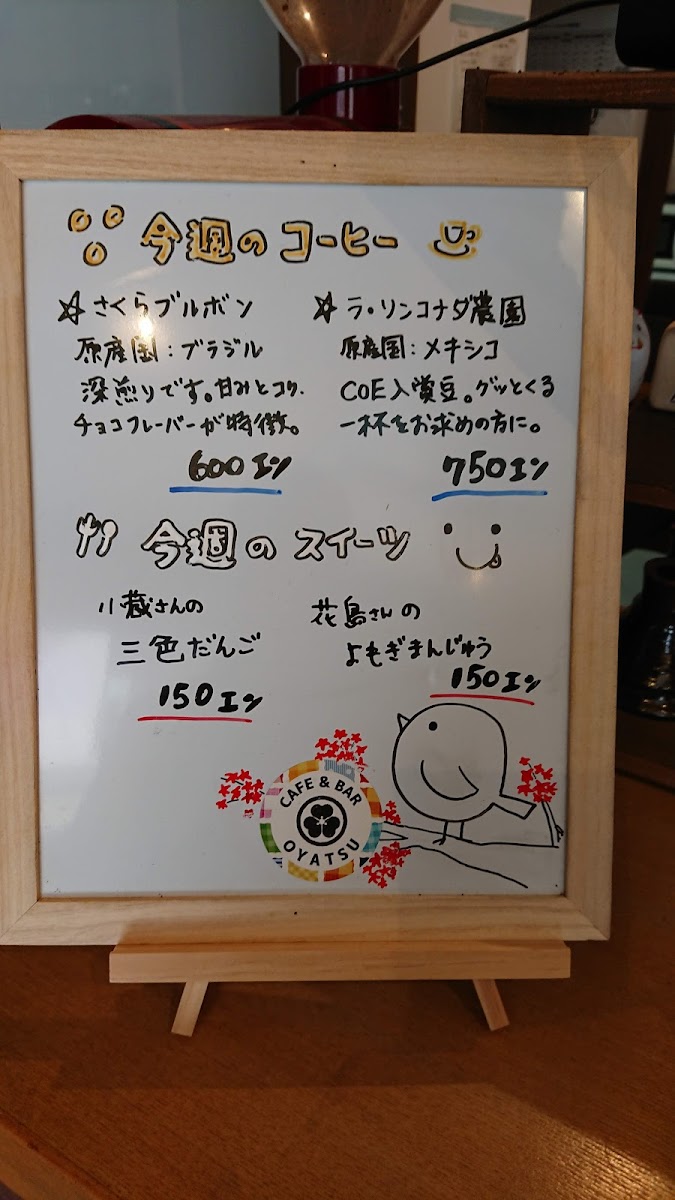 今週のコーヒー
☆さくらブルボン
原産国:ブラジル
深煎りです。甘みとコク、
チョコフレーバーが特徴。
600エン
☆ラ・リンコナダ農園
原産国:メキシコ
COE入賞豆。グッとくる
一杯をお求めの方に。
750エン
今週のスイーツ
小蔵さんの
三色だんご
150エン
花島さんの
よもぎまんじゅう
150エン
CAFE & BAR
OYATSU